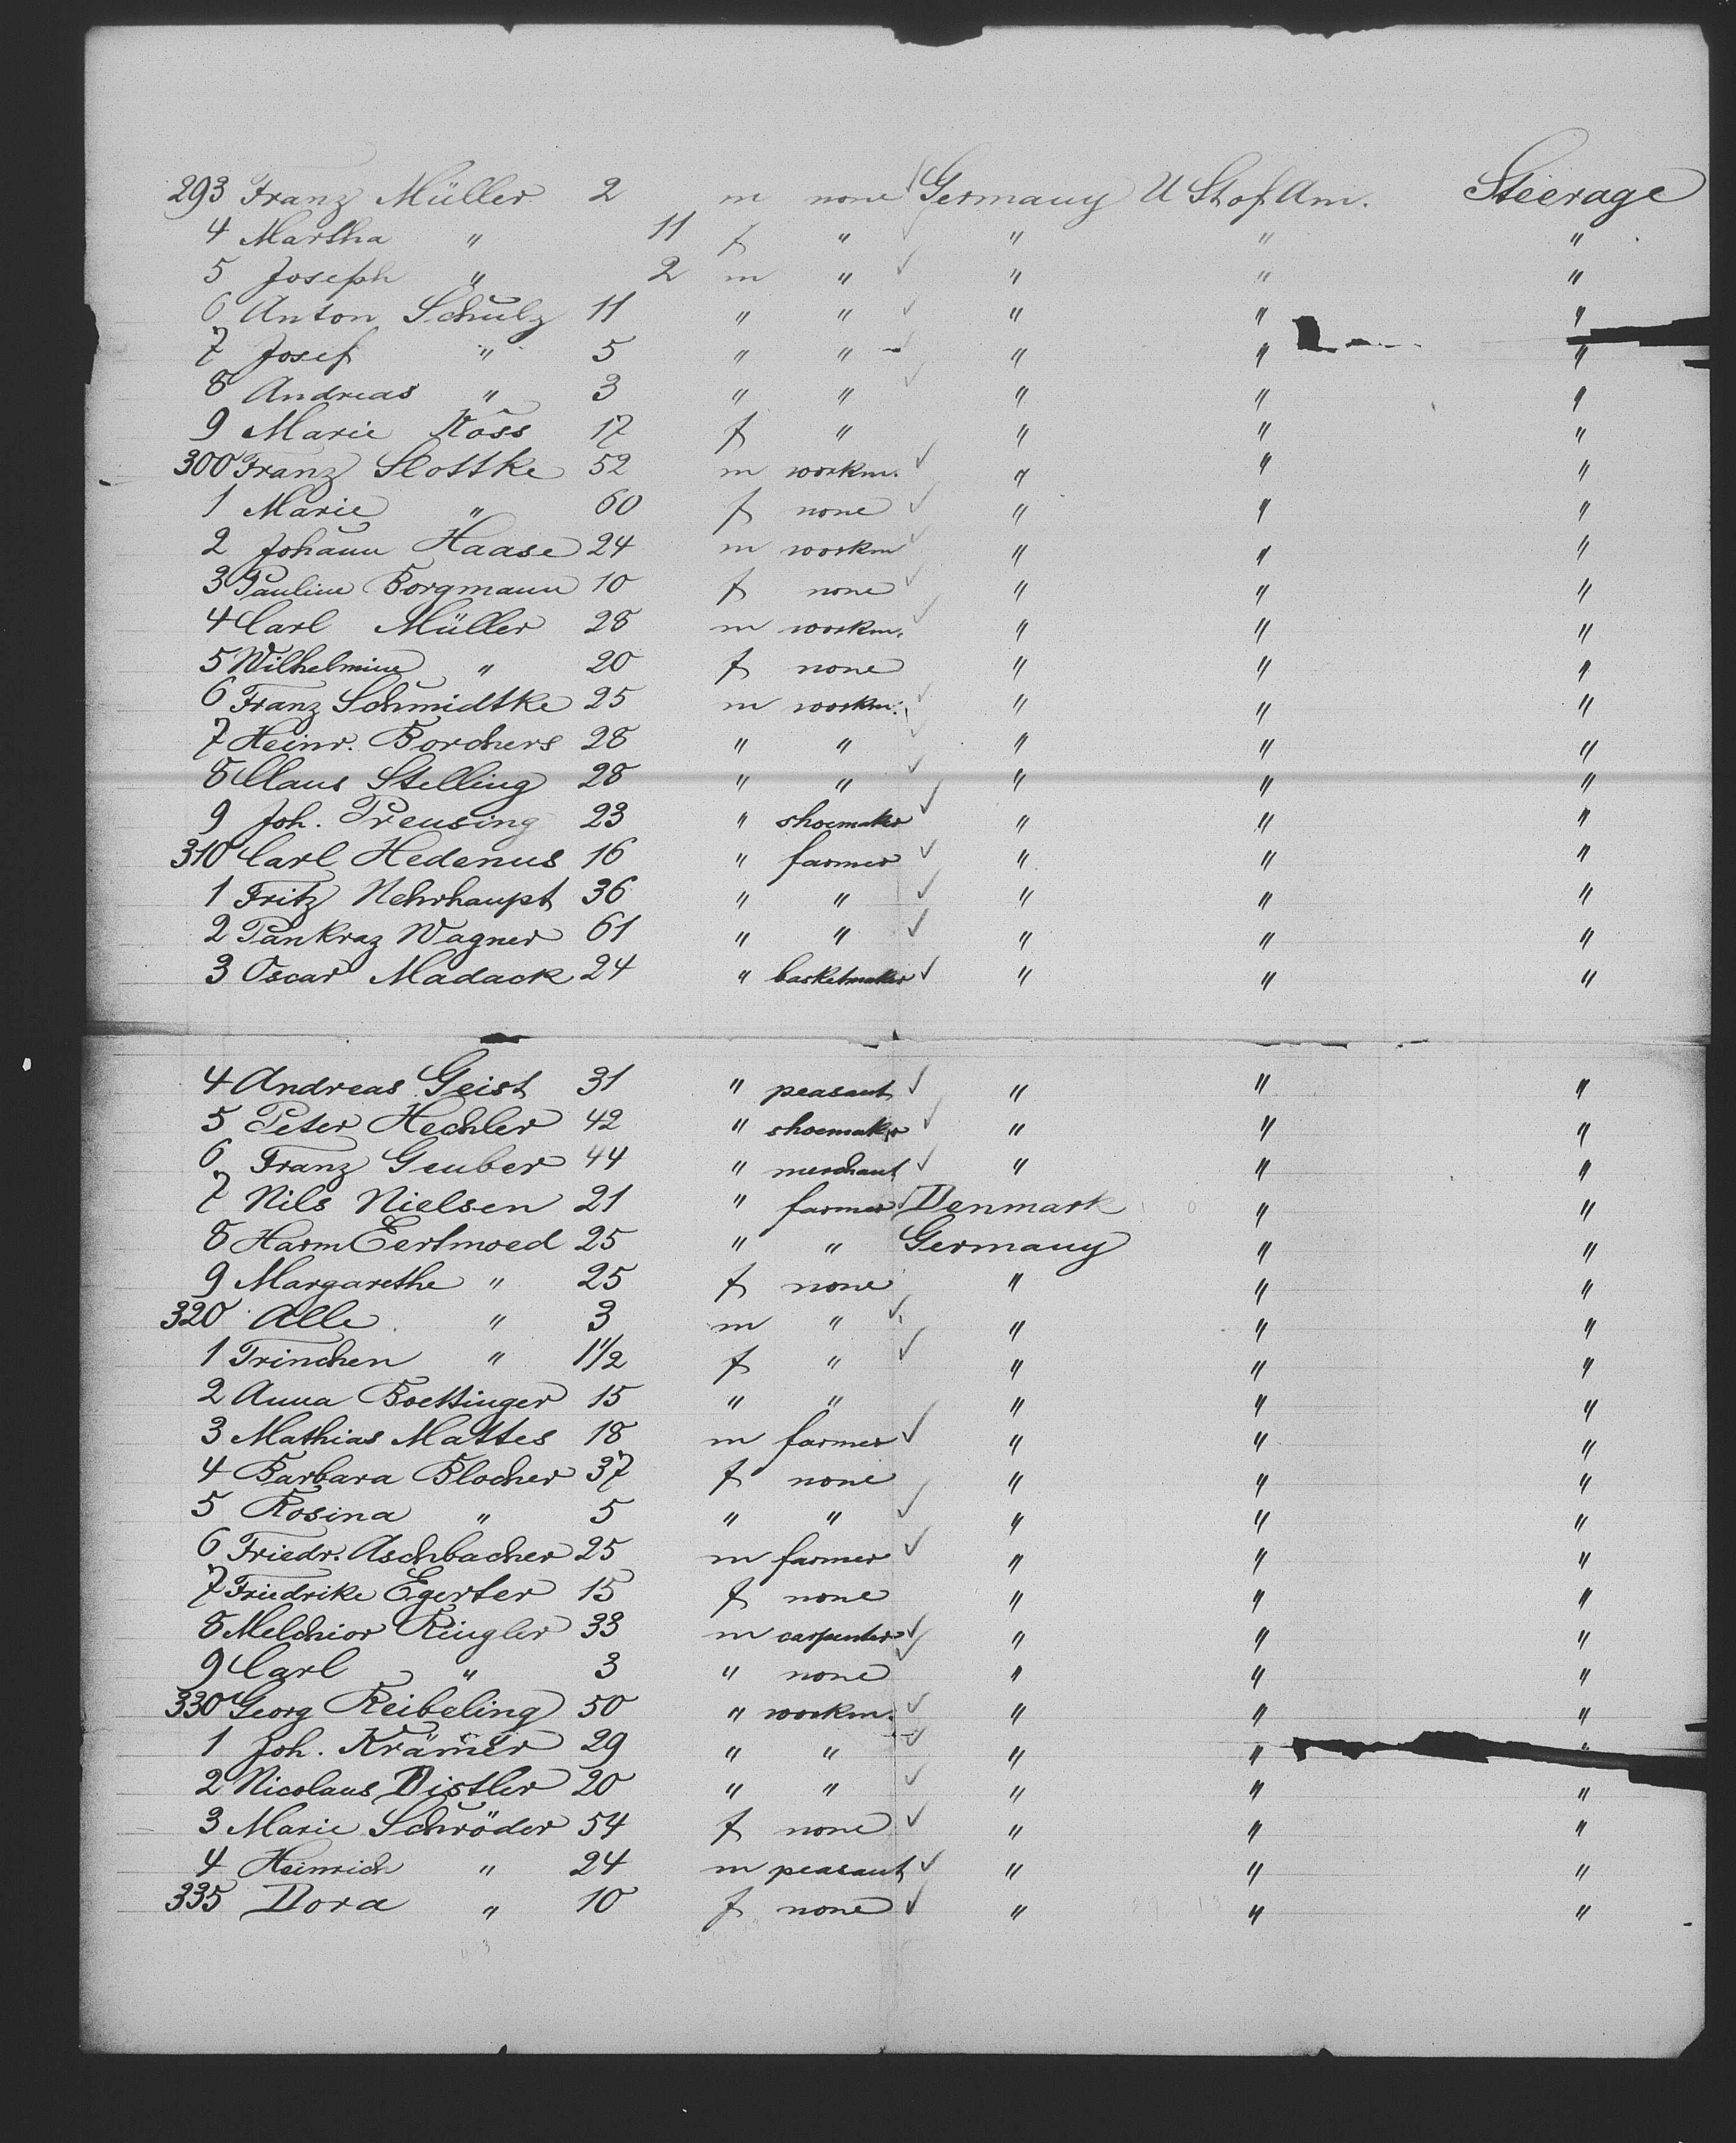 293 Franz Müller 2 m none Germany U St of Am. Steerage
4 Martha " 11 f " " " "
5 Joseph " 2 m " " " "
6 Anton Schulz 11 " " " " "
7 Josef " 5 " " " " "
8 Andreas " 3 " " " " "
9 Marie Koss 17 f " " " "
300 Franz Slottke 52 m workm. " " "
1 Marie " 60 f none " " "
2 Johann Haase 24 m workm " " "
3 Pauline Borgmann 10 f none " " "
4 Carl Müller 28 m workm. " " "
5 Wilhelmine " 20 f none " " "
6 Franz Schmidtke 25 m workm. " " "
7 Heinr. Borchers 28 " " " " "
8 Claus Stelling 28 " " " " "
9 Joh. Preusing 23 " shoemaker " " "
310 Carl Hedenus 16 " farmer " " "
1 Fritz Nehrhaupt 36 " " " " "
2 Pankraz Wagner 61 " " " " "
3 Oscar Madack 24 " basketmaker " " "
4 Andreas Geist 31 " peasant " " "
5 Peter Hechler 42 " shoemaker " " "
6 Franz Geuber 44 " merchant " " "
7 Nils Nielsen 21 " farmer Denmark " "
8 Harm Eertmoed 25 " " Germany " "
9 Margarethe " 25 f none " " "
320 Alle " 3 m " " " "
1 Trinchen " 1 1/2 f " " " "
2 Anna Boettinger 15 " " " " "
3 Mathias Mattes 18 m farmer " " "
4 Barbara Blocher 37 f none " " "
5 Rosina " 5 " " " " "
6 Friedr. Aschbacher 25 m farmer " " "
7 Friedrike Egerter 15 f none " " "
8 Melchior Ringler 33 m carpenter " " "
9 Carl " 3 " none " " "
330 Georg Reibeling 50 " workm. " " "
1 Joh. Krämer 29 " " " " "
2 Nicolaus Distler 20 " " " " "
3 Marie Schröder 54 f none " " "
4 Heinrich " 24 m peasant " " "
335 Dora " 10 f none " " "